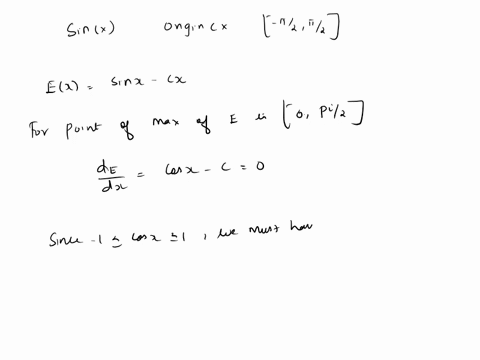 Sin(x) origin cx [-π/2, π/2]
E(x) = sinx - cx
For point of max of E in [0, Pi/2]
dE/dx = cosx - c = 0
Since -1 ≤ cosx ≤ 1, we must hav